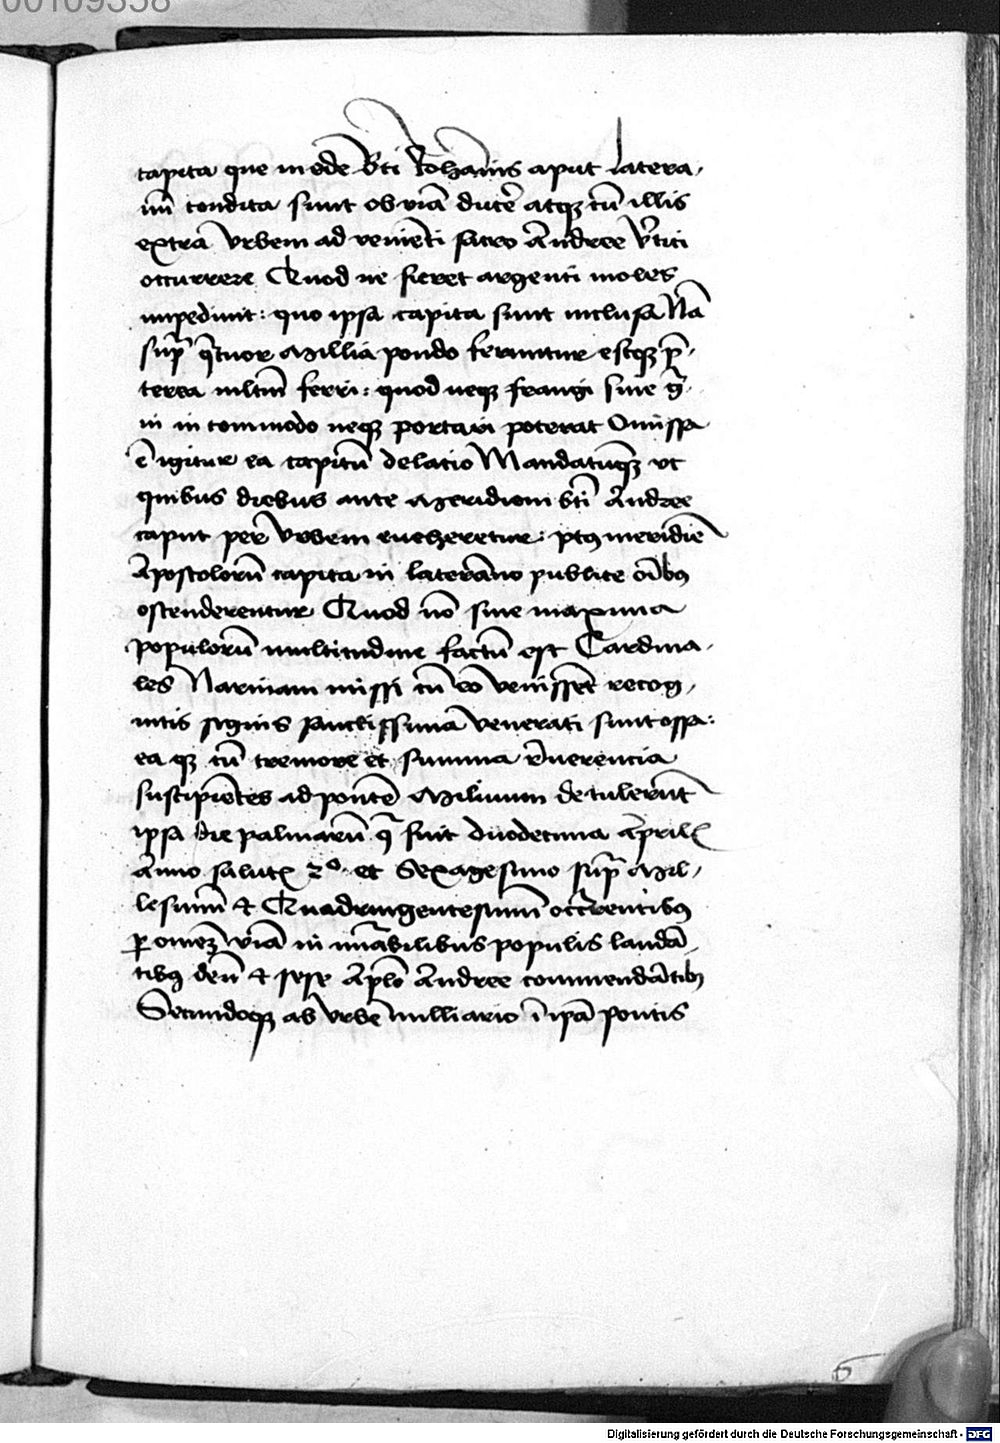 00109358
capita que in ede bti Iohānis aput Latera-
nū condita sunt obviā ducē atqȝ cū illis
extra Urbem ad veniēti sacro Andree v̄tici
occurrere Quod ne fieret argenti moles
impediuit: quo ipsa capita sunt inclusa Nā
sup̄ q̄tuor Millia pondo feruntur estqȝ p̄-
terea ml̄tm̄ ferri: quod neqȝ frangi sine g̃-
in in commodo neqȝ portari poterat Omissa
ē igitur ea capitū delatio Mandatūqȝ ut
quibus diebus ante Meridiem bti Andree
caput per Urbem eveheretur: ptqȝ meridiē
Apostolorū capita in laterano publice oībus
ostenderentur Quod nō sine maxima
populorū multitudine factū est Cardina-
les Narniam missi cū eo venissēt recog-
nitis signis sanctissima venerati sunt ossa:
ea qȝ cū tremore et summa reuerencia
suscipiētes ad pontē Miluium detulerūt
ipsa die palmarū q̄ fuit duodecima April̄
Anno salut̄ 2º. et Sexagesimo sup̄ Mil-
lesimū & Quadringentesimū occ̄rentibus
ꝑ omnē viā in īnūabilibus populis laudā-
tibus deū & sese Aplō Andree commendātibȝ
Secundoqȝ ab Urbē milliario ī ipā pontis
6
Digitalisierung gefördert durch die Deutsche Forschungsgemeinschaft - DFG